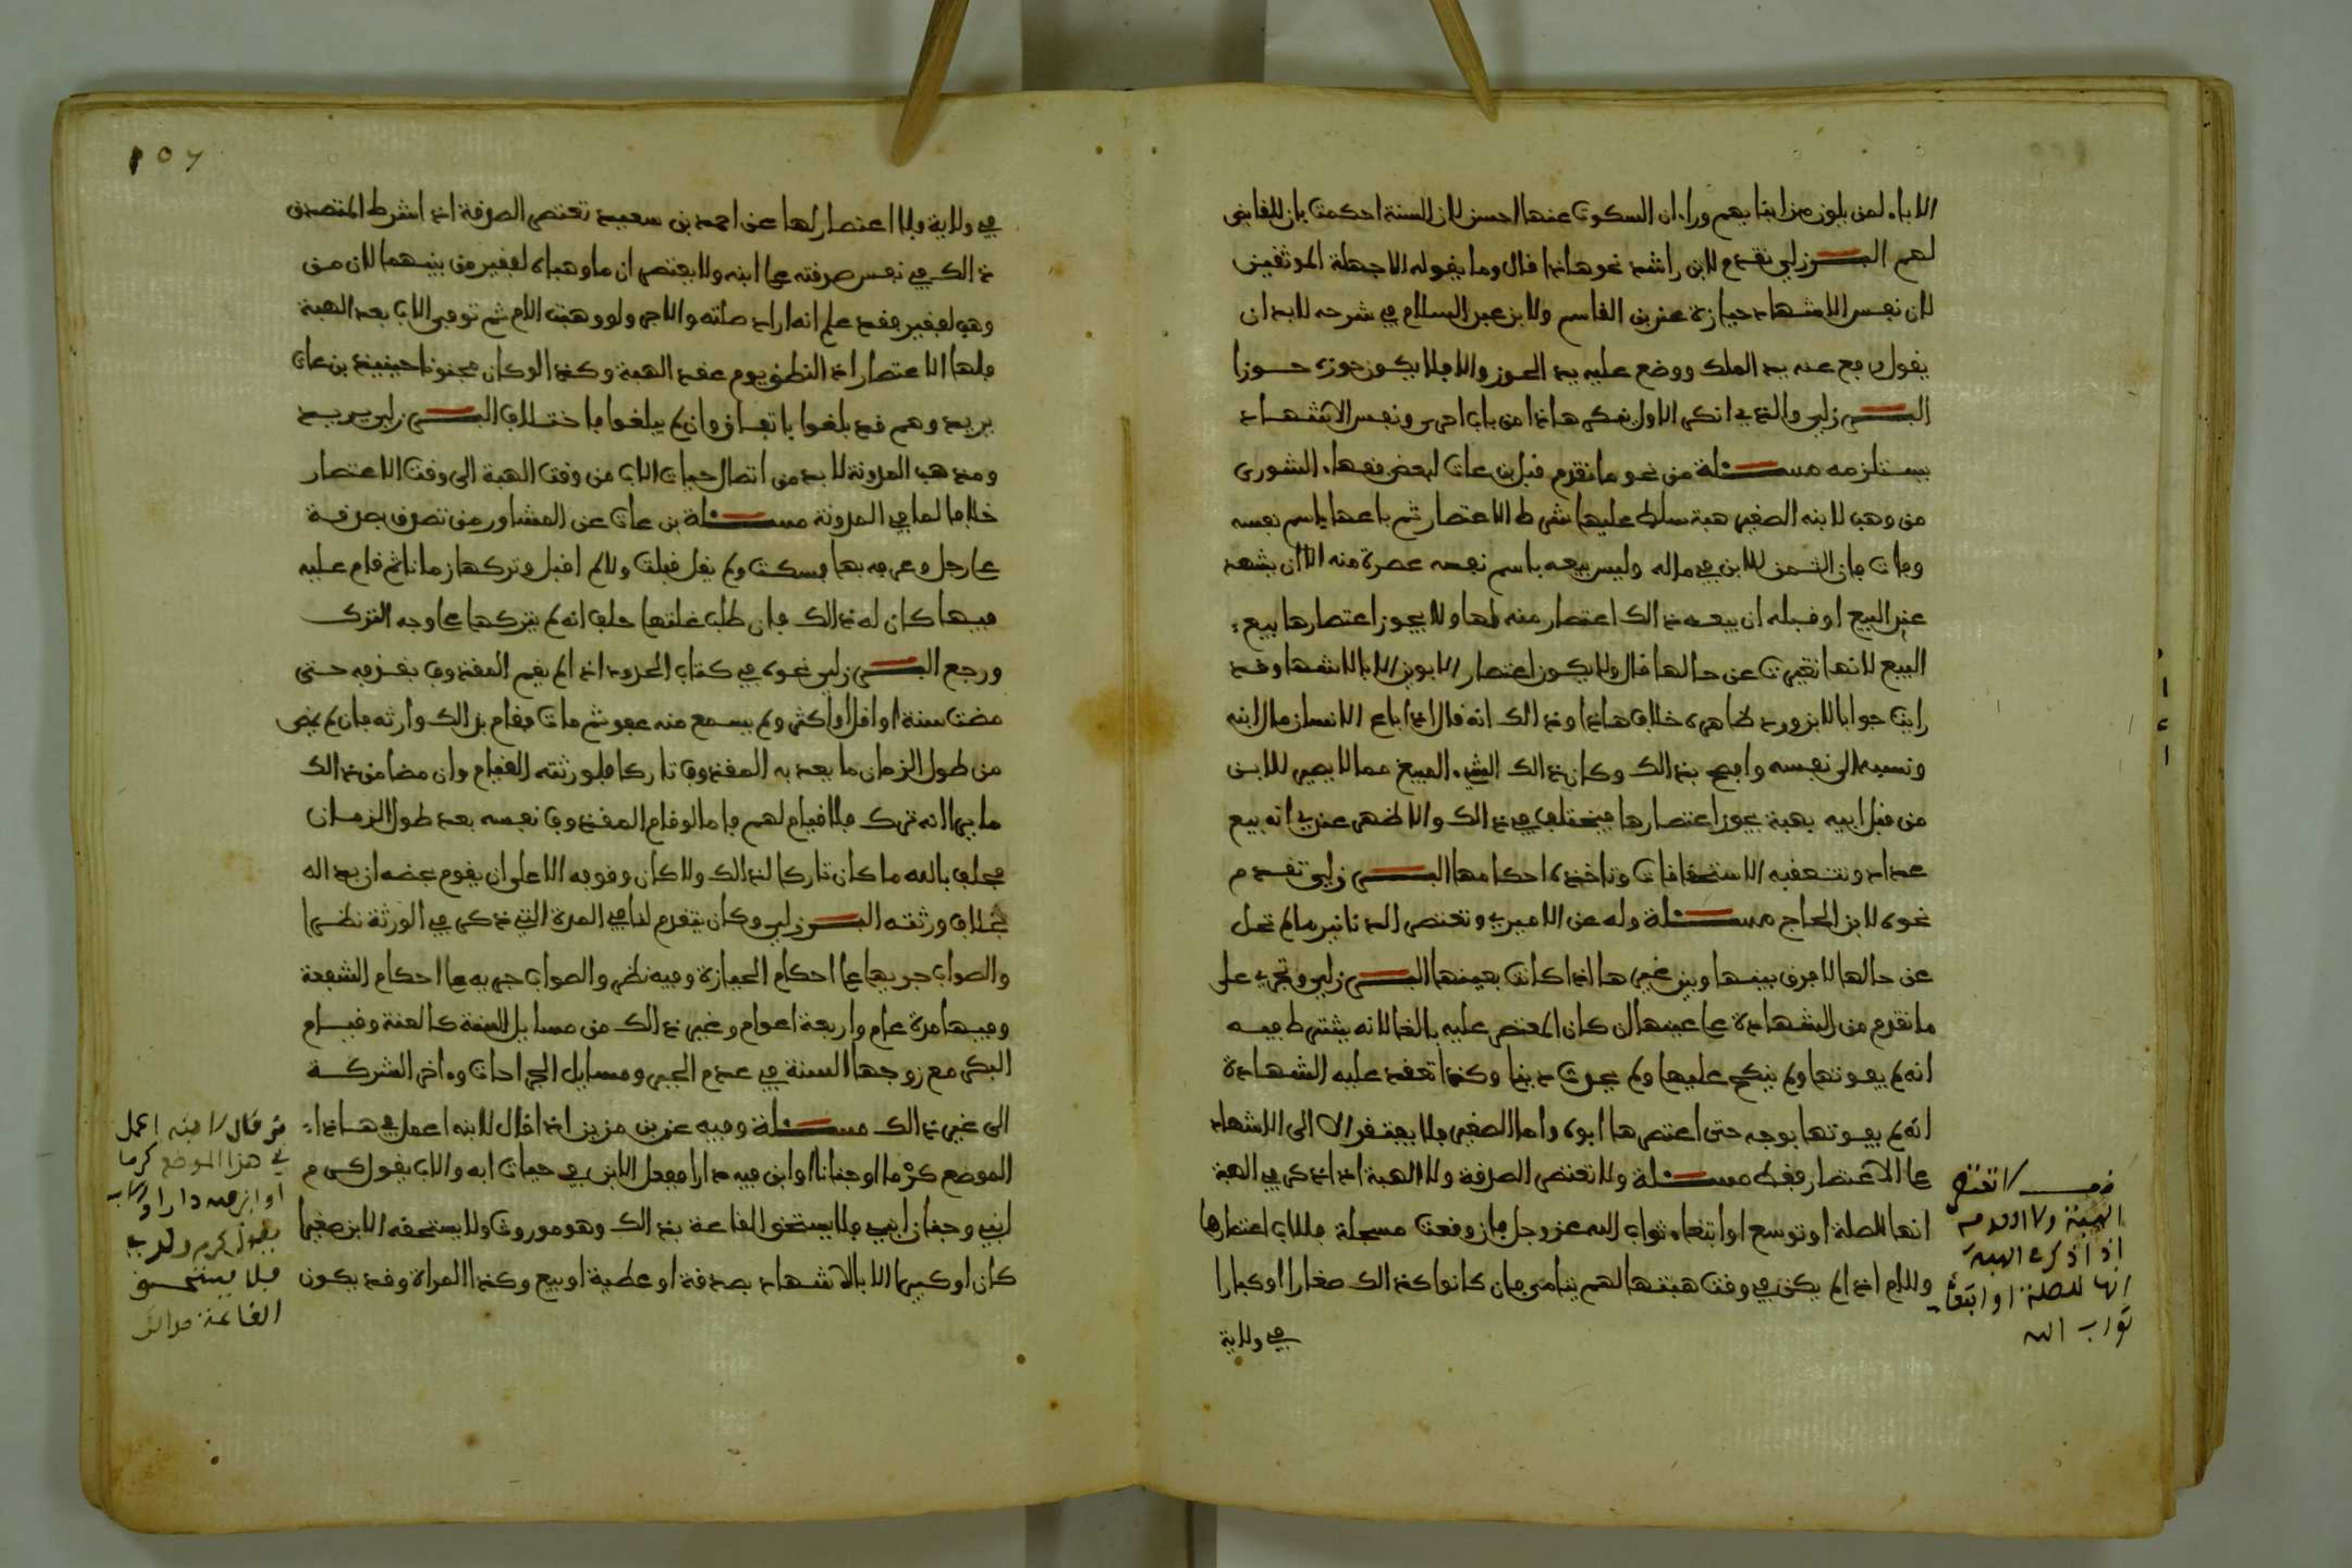 الاباء لمن يلون من ابنايهم وراء ان السكوت عنها احسن لان السنة احكمت بان للقابض
لهم البرزلي تقدم لابن راشد نحو هاذا قال وما يقوله الا جهلة الموثقين
لان نفس الاشهاد حيازة عند بن القاسم ولابن عبد السلام في شرحه لابد ان
يقول رفع عنه يد الملك ووضع عليه يد الحوز والا فلا يكون حوزه حوزا
البرزلي والذي انكر الاول ينكر هاذا من باب احرى ونفس الاشهاد
يستلزمه مسئلة من نحو ما تقدم قبل بن عات لبعض فقهاء الشورى
من وهب لابنه الصغير هبة سلط عليها شرط الاعتصار ثم باعها باسم نفسه
ومات فان الثمن للابن في ماله وليس بيعه باسم نفسه عصرة منه الا ان يشهد
عند البيع او قبله ان بيعه ذالك اعتصار منه لها ولا يجوز اعتصارها بيع
البيع لانها تغيرت عن حالها قال ولا يكون اعتصار الابوين الا بالاشهاد وقد
رايت جوابا لابن ورد ظاهره خلاف هاذا وذالك انه قال اذا باع الانسان مال ابنه
ونسبه الى نفسه وافصح بذالك وكان ذالك الشيء المبيع مما لا يصير للابن
من قبل ابيه بهبة يجوز اعتصارها فيختلف في ذالك والاظهر عندي انه بيع
عداء وتتعقبه الاستحقاقات وتاخذه احكامها البرزلي تقدم
نحوه لابن الحاج مسئلة وله عن الاميري وتعتصر الدنانير ما لم تحل
عن حالها لا فرق بينها وبين غيرها اذا كانت بعينها البرزلي وتجري على
ما تقدم من الشهادة على عينها ان كان المعتصر عليه بالغا لانه يشترط فيه
انه لم يفوتها ولم ينكح عليها ولم يحدث دينا وكذا تعقد عليه الشهادة
انه لم يفوتها بوجه حتى اعتصرها ابوه واما الصغير فلا يفتقر الا الى الاشهاد
على الاعتصار فقط مسئلة ولا تعتصر الصدقة ولا الهبة اذا ذكر في الهبة
انها للصلة او توسع او ابتغاء ثواب الله عز وجل فان وقعت مسجلة فللاب اعتصارها
وللام اذا لم يكن في وقت هبتها لهم يتامى فان كانوا كذالك صغارا او كبارا
في ولاية
لا تعتصر
الهبة ولا
اذا ذكر في الهبة
انها للصلة او ابتغاء
ثواب الله
107
في ولاية فلا اعتصار لها عن احمد بن سعيد تعتصر الصدقة اذا اشترط المتصدق
ذالك في نفس صدقته على ابنه ولا يعتصر ان ما وهباه لفقير من بينهما لان من
وهب لفقير فقد علم انه اراد صلته والاجر ولو وهبت الام ثم توفي الاب بعد الهبة
فلها الاعتصار اذ النظر يوم عقد الهبة وكذا لو كان مجنونا حينيذ بن عات
يريد وهم قد بلغوا باتفاق وان لم يبلغوا باختلاف البرزلي يريد
ومذهب المدونة لا بد من اتصال حيات الاب من وقت الهبة الى وقت الاعتصار
خلافا لما في المدونة مسئلة بن عات عن المشاور من تصدق بصدقة
على رجل وعرفه بها فسكت ولم يقل قبلت ولا لم اقبل وتركها زمانا ثم قام عليه
فيها كان له ذالك فان طلب غلتها حلف انه لم يتركها على وجه الترك
ورجع البرزلي نحوه في كتاب الحدود اذا لم يقم المقذوف بقذفه حتى
مضت سنة او اقل او اكثر ولم يسمع منه عفو ثم مات فقام بذالك وارثه فان لم يمض
من طول الزمان ما يعد به المقذوف تاركا فلورثته القيام وان مضا من ذالك
ما يرا انه ترك فلا قيام لهم فاما لو قام المقذوف نفسه بعد طول الزمان
فحلف بالله ما كان تاركا لذالك ولا كان وقوفه الا على ان يقوم بحقه ان بدا له
بخلاف ورثته البرزلي وكان يتقدم لنا في المدة التي ذكر في الورثة نظرا
والصواب جريها على احكام الحيازة وفيه نظر والصواب جريه على احكام الشفعة
وفيها مدة عام واربعة اعوام وغير ذالك من مسايل السنة كالعنة وقيام
البكر مع زوجها السنة في عدم الجبر ومسايل الجراحات وءاخر الشركة
الى غير ذالك مسئلة وفيه عن بن مزين اذا قال لابنه اعمل في هاذا
الموضع كرما او جنانا او ابن فيه دارا ففعل الابن في حيات ابه والاب يقول كرم
ابني وجنان ابني فلا يستحق القاعة بذالك وهو موروث ولا يستحقه الابن صغيرا
كان او كبيرا الا بالاشهاد بصدقة او عطية او بيع وكذا المراة وقد يكون
من قال لابنه اعمل
في هذا الموضع كرما
او ابن فيه دارا والاب
يقول كرم ولدي
فلا يستحق
القاعة بذالك